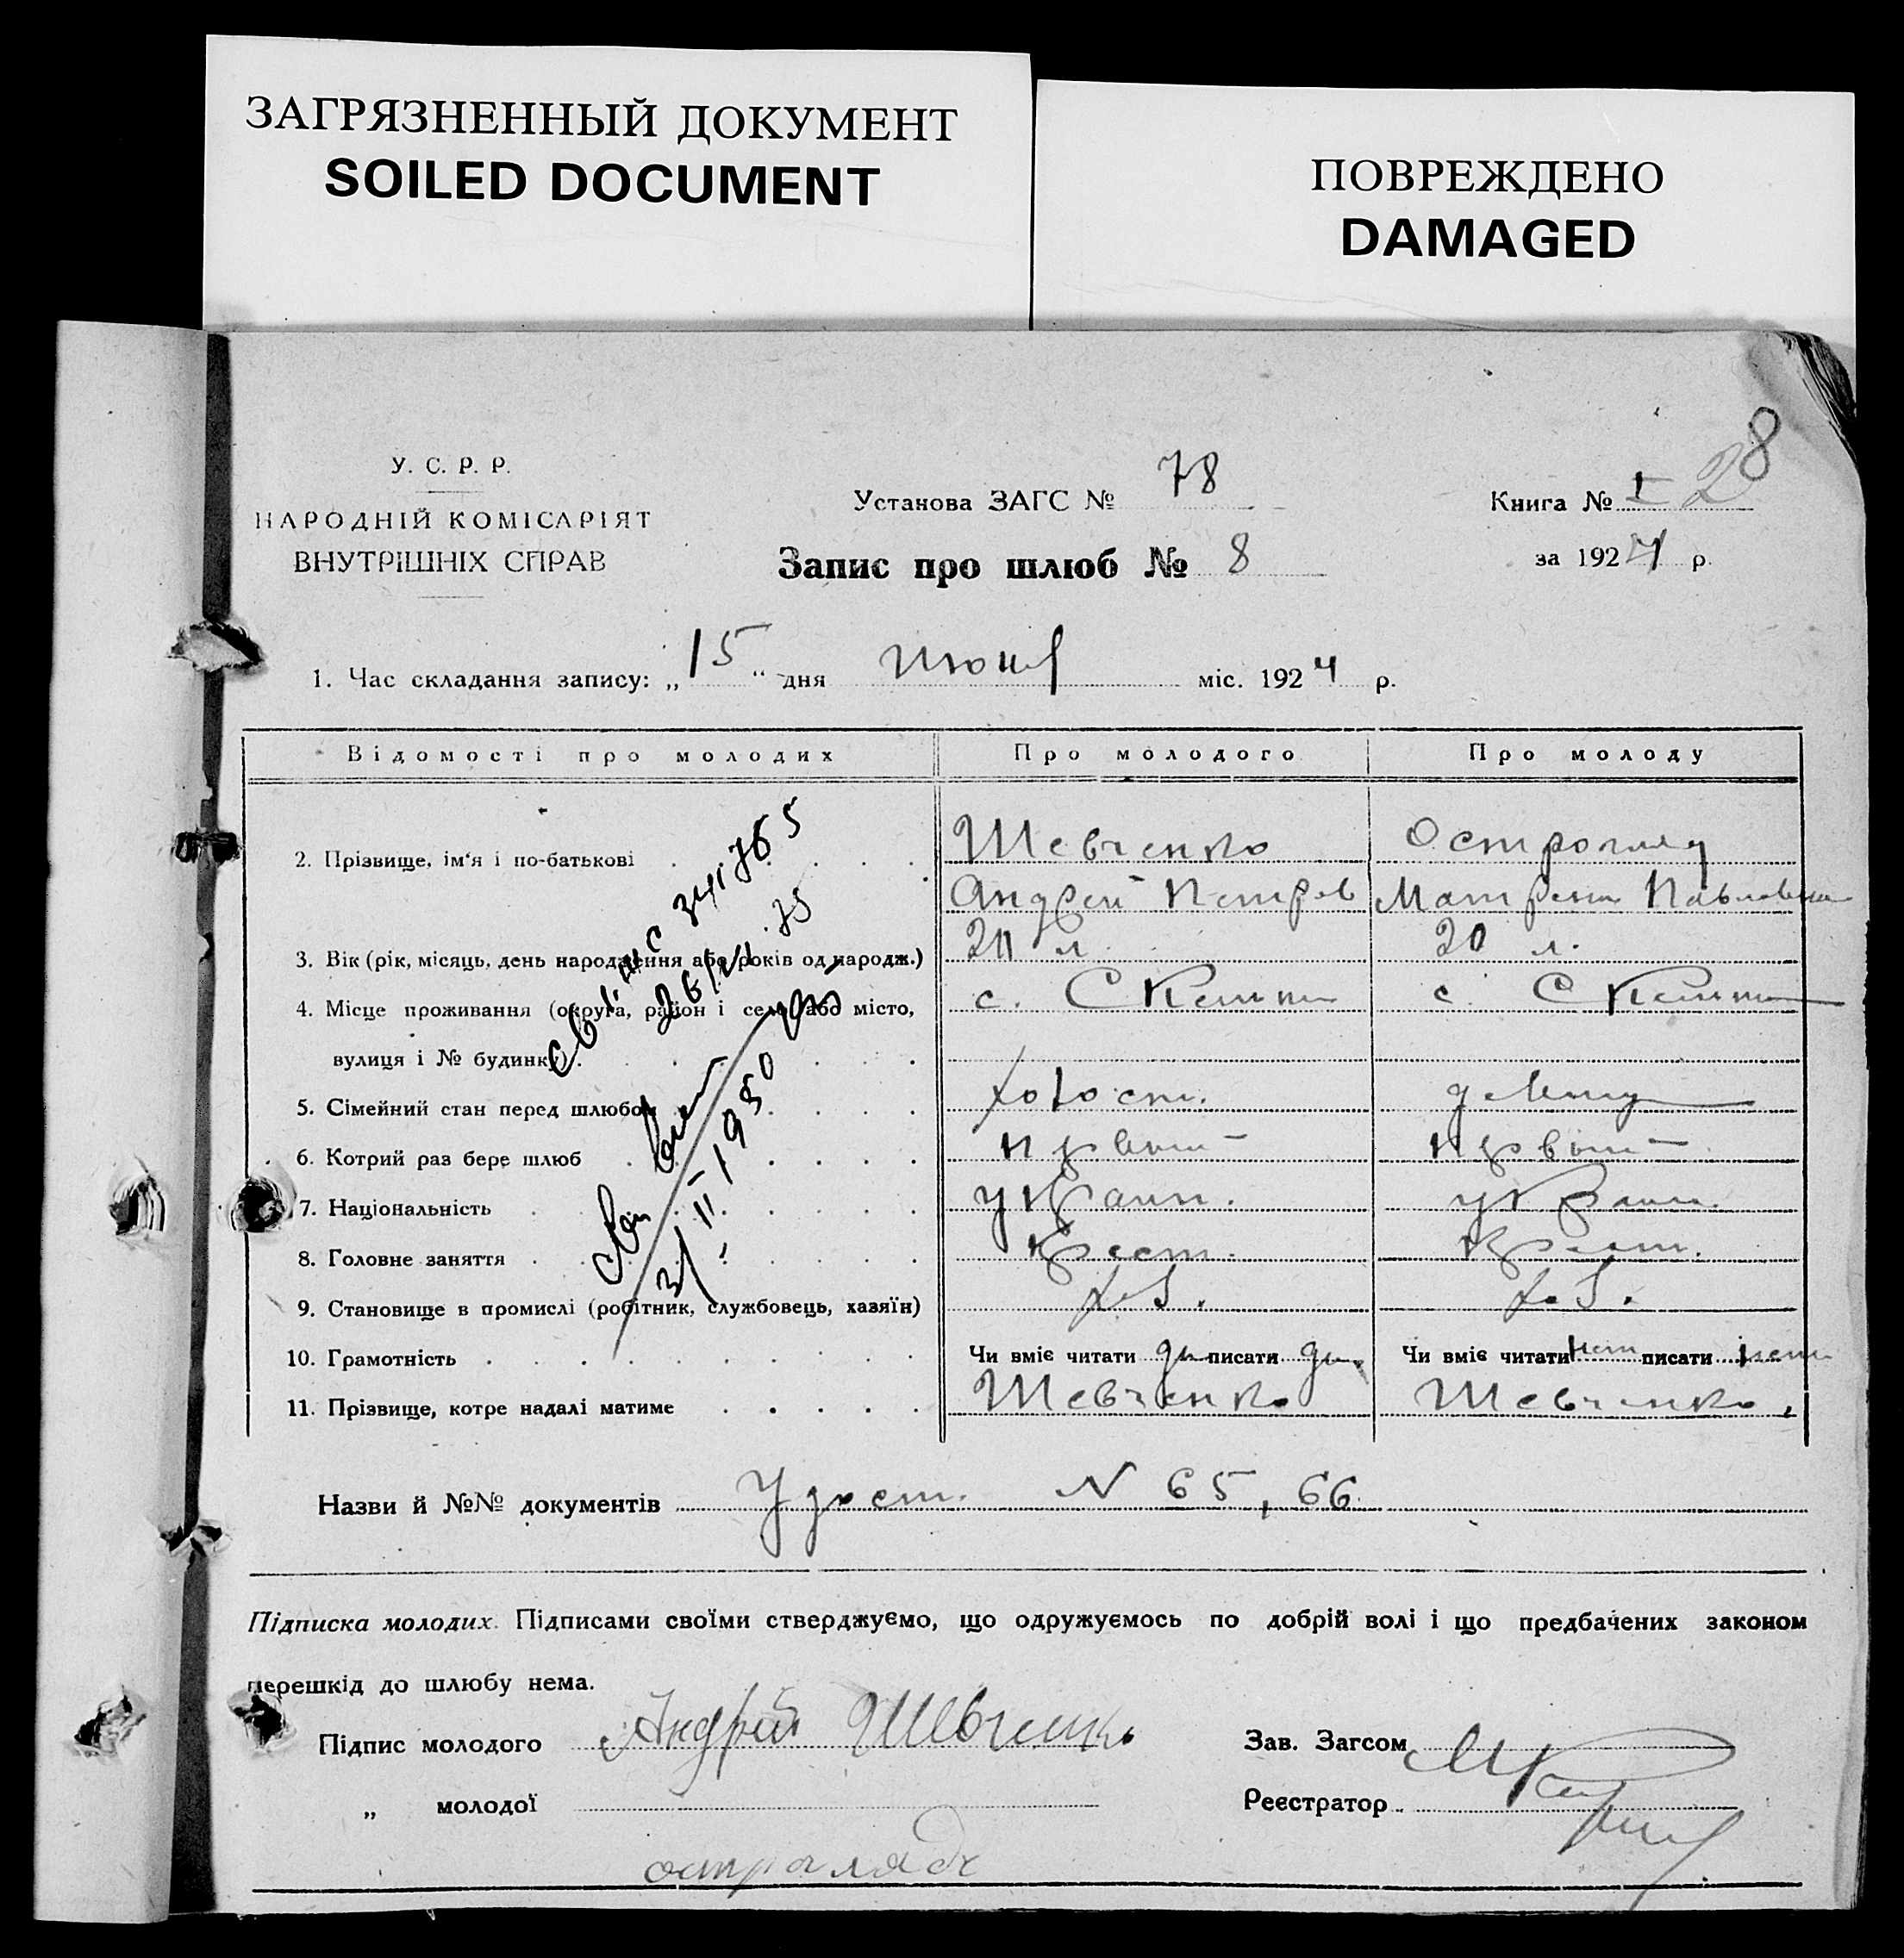 ЗАГРЯЗНЕННЫЙ ДОКУМЕНТ
SOILED DOCUMENT
ПОВРЕЖДЕНО
DAMAGED
28
У. С. Р. Р.
НАРОДНІЙ КОМІСАРІЯТ
ВНУТРІШНІХ СПРАВ
Установа ЗАГС № 78
Запис про шлюб № 8
Книга № I
за 1924 р.
1. Час складання запису: „15“ дня июня міс. 1924 р.
Відомості про молодих Про молодого Про молоду
2. Прізвище, ім‘я і по-батькові Шевченко Острогляд
Андрей Петров Матрена Павловна
3. Вік (рік, місяць, день народження або років од народж.) л. 20 л.
4. Місце проживання (округа, район і село або місто, с. с.
вулиця і № будинку)
5. Сімейний стан перед шлюбом холост. девица
6. Котрий раз бере шлюб первый первый
7. Національність украин. украин.
8. Головне заняття крест. крест.
9. Становище в промислі (робітник, службовець, хазяїн)
10. Грамотність Чи вміє читати да писати да. Чи вміє читати нет писати нет
11. Прізвище, котре надалі матиме Шевченко Шевченко.
1950
Назви й №№ документів Удост. N 65, 66.
Підписка молодих. Підписами своїми стверджуємо, що одружуємось по добрій волі і що предбачених законом
перешкід до шлюбу нема.
Підпис молодого Андрій Шевченко Зав. Загсом
„ молодої Реєстратор